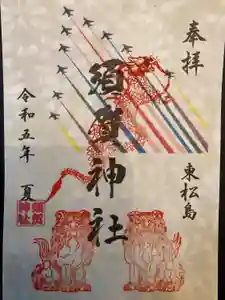 奉拝
東松島
須賀神社
令和五年 夏